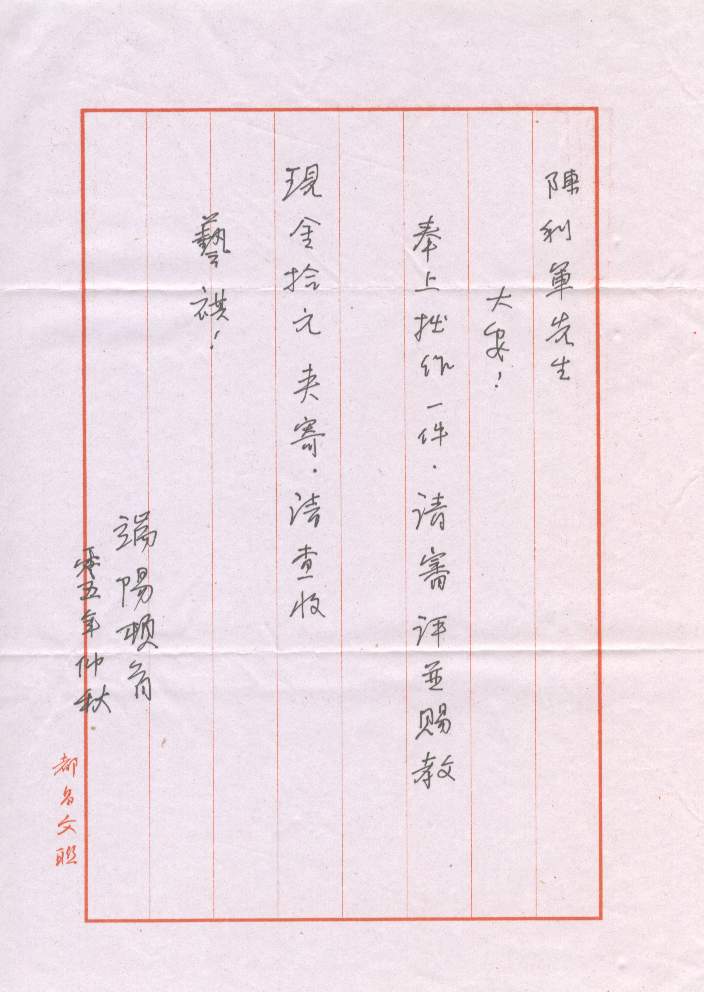 陳利軍先生
大安！
奉上拙作一件．请審评並賜教
現金拾元夹寄．请查收
藝祺！
端陽頓首
零五年仲秋
都昌文联